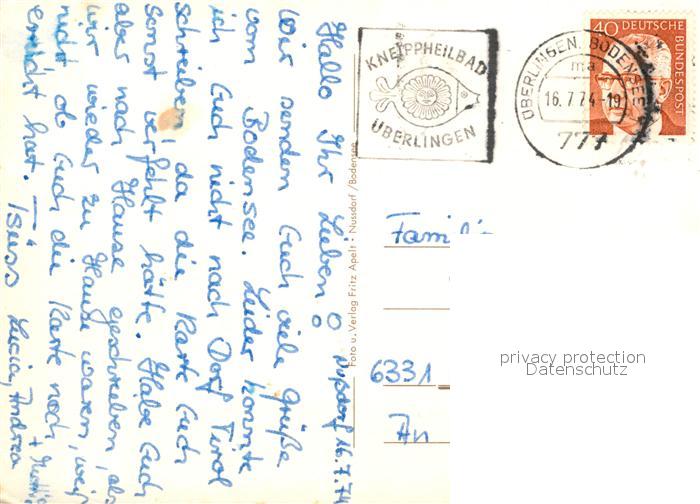 40 DEUTSCHE BUNDESPOST
KNEIPPHEILBAD
ÜBERLINGEN
ÜBERLINGEN, BODENSEE
ma
16.7.74-19
777
Nußdorf 16.7.74
Hallo Ihr Lieben
Wir senden Euch viele Grüße
vom Bodensee. Leider konnte
ich Euch nicht nach Dorf Tirol
schreiben, da die Karte Euch
sonst verfehlt hätte. Habe Euch
aber nach Hause geschrieben, als
wir wieder zu Hause waren, weiß
nicht ob Euch die Karte noch
erreicht hat. –
Bussi Lucia, Andrea
+ Mutti
Foto u. Verlag Fritz Apelt • Nussdorf/Bodensee
Famili
6331
An
privacy protection
Datenschutz